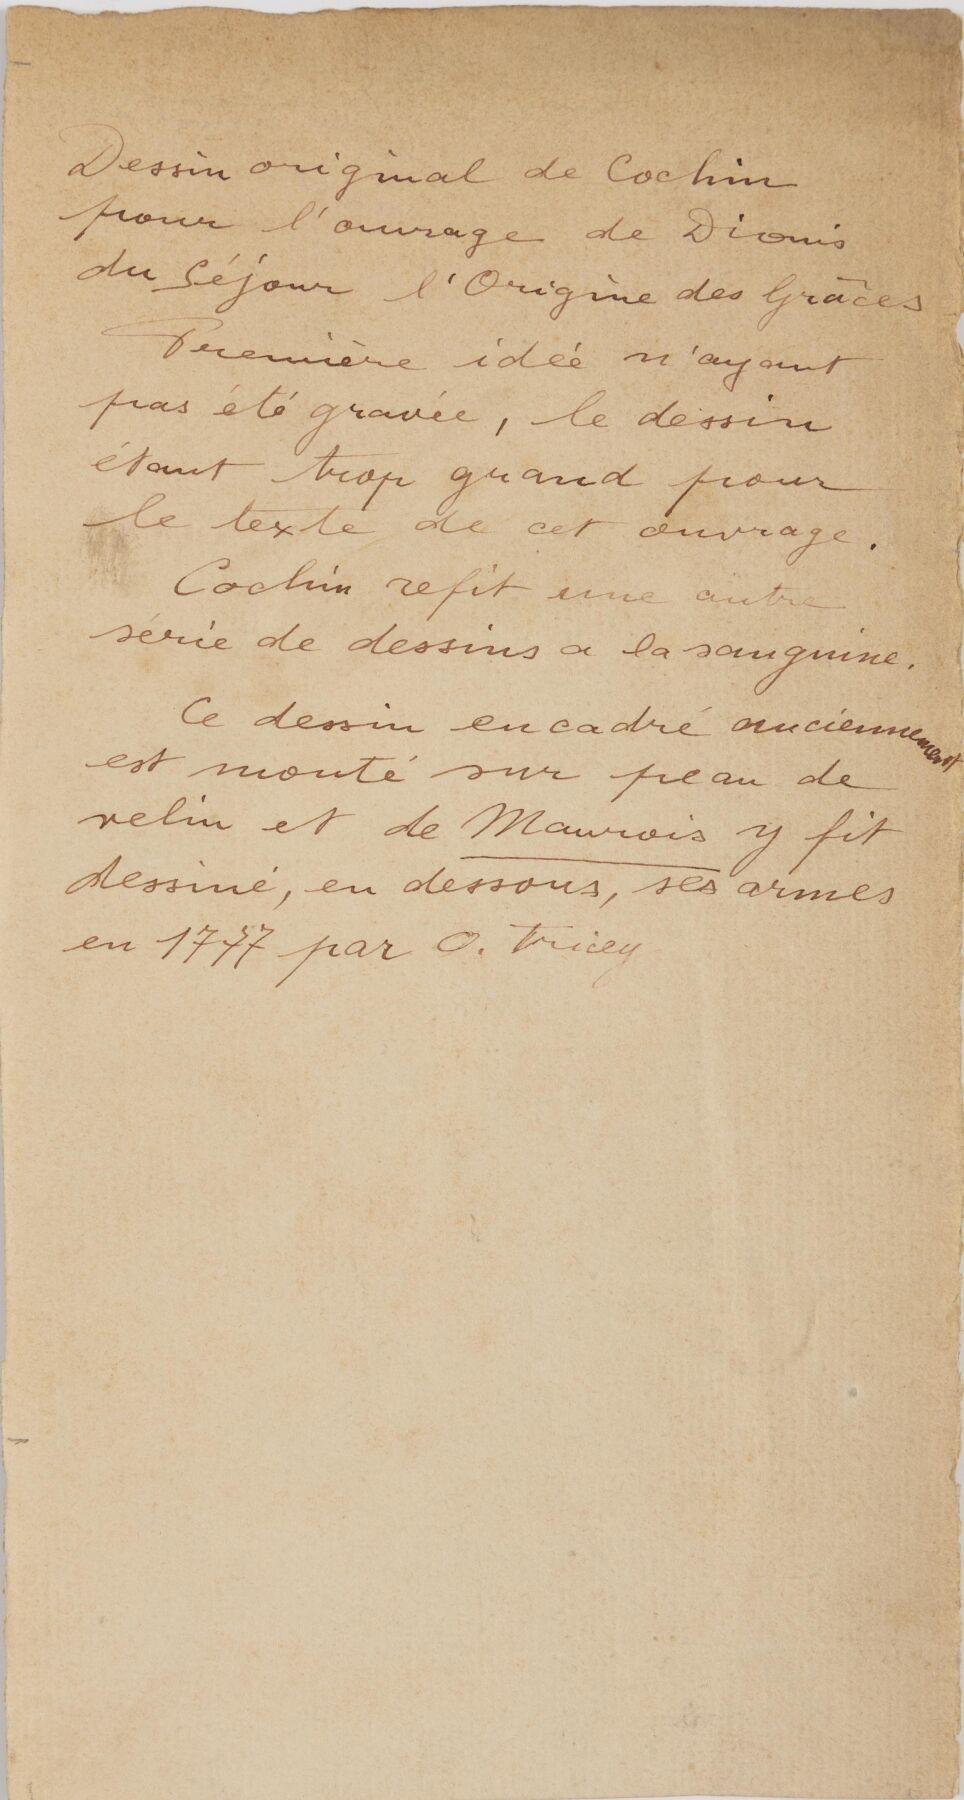 Dessin original de Cochin
pour l'ouvrage de Dionis
du Séjour l'Origine des Grâces
Première idée n'ayant
pas été gravée, le dessin
étant trop grand pour
le texte de cet ouvrage.
Cochin refit une autre
série de dessins a la sanguine.
Ce dessin encadré anciennement
est monté sur peau de
velin et de Maurois y fit
dessiné, en dessous, ses armes
en 1777 par O.